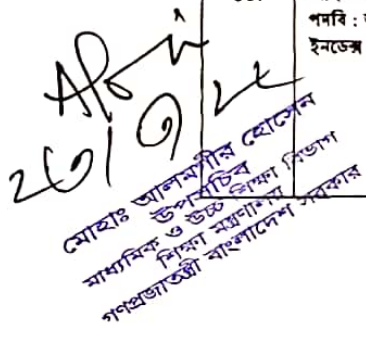 পদবি :
ইনডেক্স
মোহাঃ আলমগীর হোসেন
উপসচিব
মাধ্যমিক ও উচ্চ শিক্ষা বিভাগ
শিক্ষা মন্ত্রণালয়
গণপ্রজাতন্ত্রী বাংলাদেশ সরকার